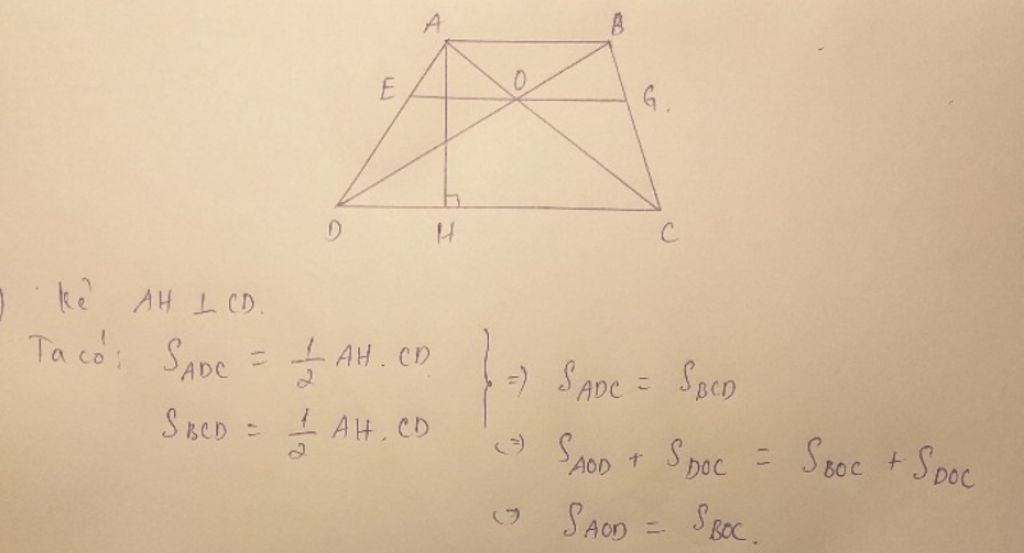 A B
E O G.
D H C
) Kẻ AH ⊥ CD.
Ta có: S_ADC = 1/2 AH. CD
S_BCD = 1/2 AH. CD
} => S_ADC = S_BCD
<=> S_AOD + S_DOC = S_BOC + S_DOC
<=> S_AOD = S_BOC.